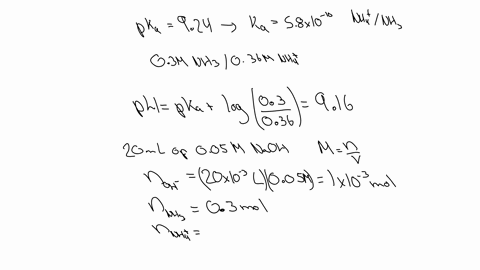 pKa = 9.24 → Ka = 5.8x10⁻¹⁰ NH₄⁺/NH₃
0.3M NH₃ / 0.36M NH₄⁺
pH = pKa + log(0.3/0.36) = 9.16
20mL of 0.05M NaOH M = n/V
nOH⁻ = (20x10⁻³ L)(0.05M) = 1x10⁻³ mol
nNH₃ = 0.3 mol
nNH₄⁺ =